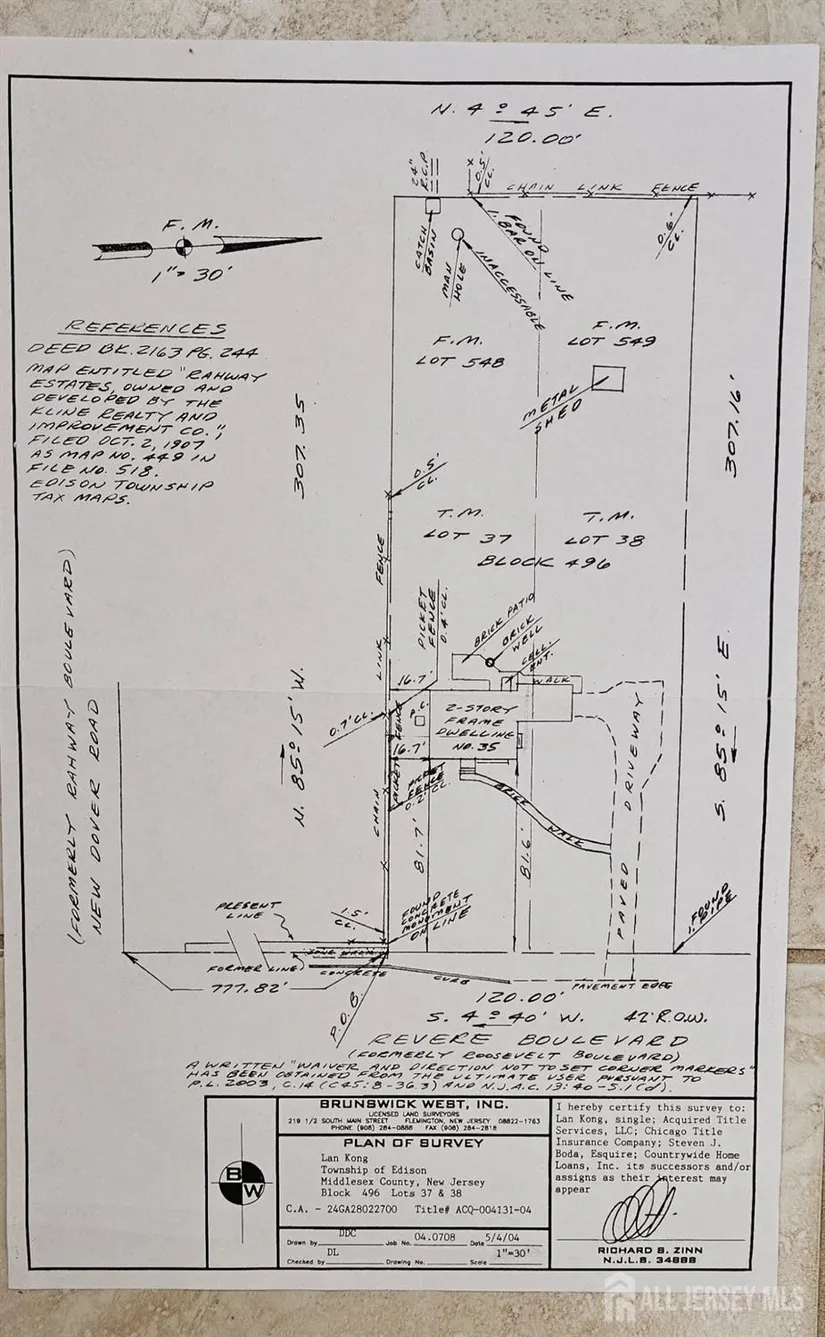 N. 4° 45' E.
120.00'
24"
R.C.P.
0.5'
CL.
CHAIN LINK FENCE
F.M.
1"= 30'
CATCH
BASIN
MAN
HOLE
INACCESSABLE
FOUND
I. BAR ON LINE
0.6'
CL.
REFERENCES
DEED BK. 2163 PG. 244
MAP ENTITLED "RAHWAY
ESTATES, OWNED AND
DEVELOPED BY THE
KLINE REALTY AND
IMPROVEMENT CO."
FILED OCT. 2, 1907
AS MAP NO. 449 IN
FILE NO. 518.
EDISON TOWNSHIP
TAX MAPS.
F.M.
LOT 548
F.M.
LOT 549
METAL
SHED
307.35
307.16'
0.5'
CL.
T.M.
LOT 37
T.M.
LOT 38
BLOCK 496
CHAIN LINK FENCE
PICKET
FENCE
0.4' CL.
BRICK PATIO
BRICK
WELL
CELL.
ENT.
WALK
16.7'
2-STORY
FRAME
DWELLING
NO. 35
16.7'
0.7' CL.
PICKET FENCE
PICKET
FENCE
0.2' CL.
BRICK WALK
PAVED DRIVEWAY
81.7'
81.6'
(FORMERLY RAHWAY BOULEVARD)
NEW DOVER ROAD
N. 85° 15' W.
S. 85° 15' E.
PRESENT
LINE
1.5'
CL.
FOUND
CONCRETE
MONUMENT
ON LINE
FOUND
I. PIPE
FORMER LINE
CONCRETE CURB
777.82'
P.O.B.
PAVEMENT EDGE
120.00'
S. 4° 40' W. 42' R.O.W.
REVERE BOULEVARD
(FORMERLY ROOSEVELT BOULEVARD)
A WRITTEN "WAIVER AND DIRECTION NOT TO SET CORNER MARKERS"
HAS BEEN OBTAINED FROM THE ULTIMATE USER PURSUANT TO
P.L. 2003, C.14 (C45:8-36.3) AND N.J.A.C. 13:40-5.1(d).
BRUNSWICK WEST, INC.
LICENSED LAND SURVEYORS
219 1/2 SOUTH MAIN STREET FLEMINGTON, NEW JERSEY 08822-1763
PHONE (908) 284-0888 FAX (908) 284-2818
PLAN OF SURVEY
Lan Kong
Township of Edison
Middlesex County, New Jersey
Block 496 Lots 37 & 38
C.A. - 24GA28022700 Title# ACQ-004131-04
Drawn by DDC Job No. 04.0708 Date 5/4/04
Checked by DL Drawing No. Scale 1"=30'
BW
I hereby certify this survey to:
Lan Kong, single; Acquired Title
Services, LLC; Chicago Title
Insurance Company; Steven J.
Boda, Esquire; Countrywide Home
Loans, Inc. its successors and/or
assigns as their interest may
appear
RICHARD S. ZINN
N.J.L.S. 34888
ALL JERSEY MLS